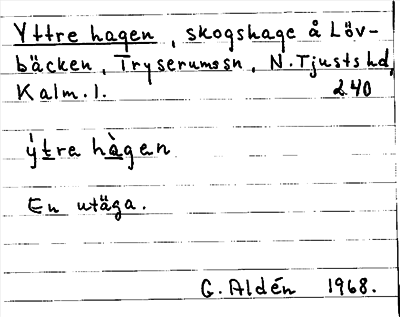 Yttre hagen, skogshage å Löv-
bäcken, Tryserumssn, N. Tjusts hd,
Kalm. l. 240
ýtre hàgen
En utäga.
G. Aldén 1968.